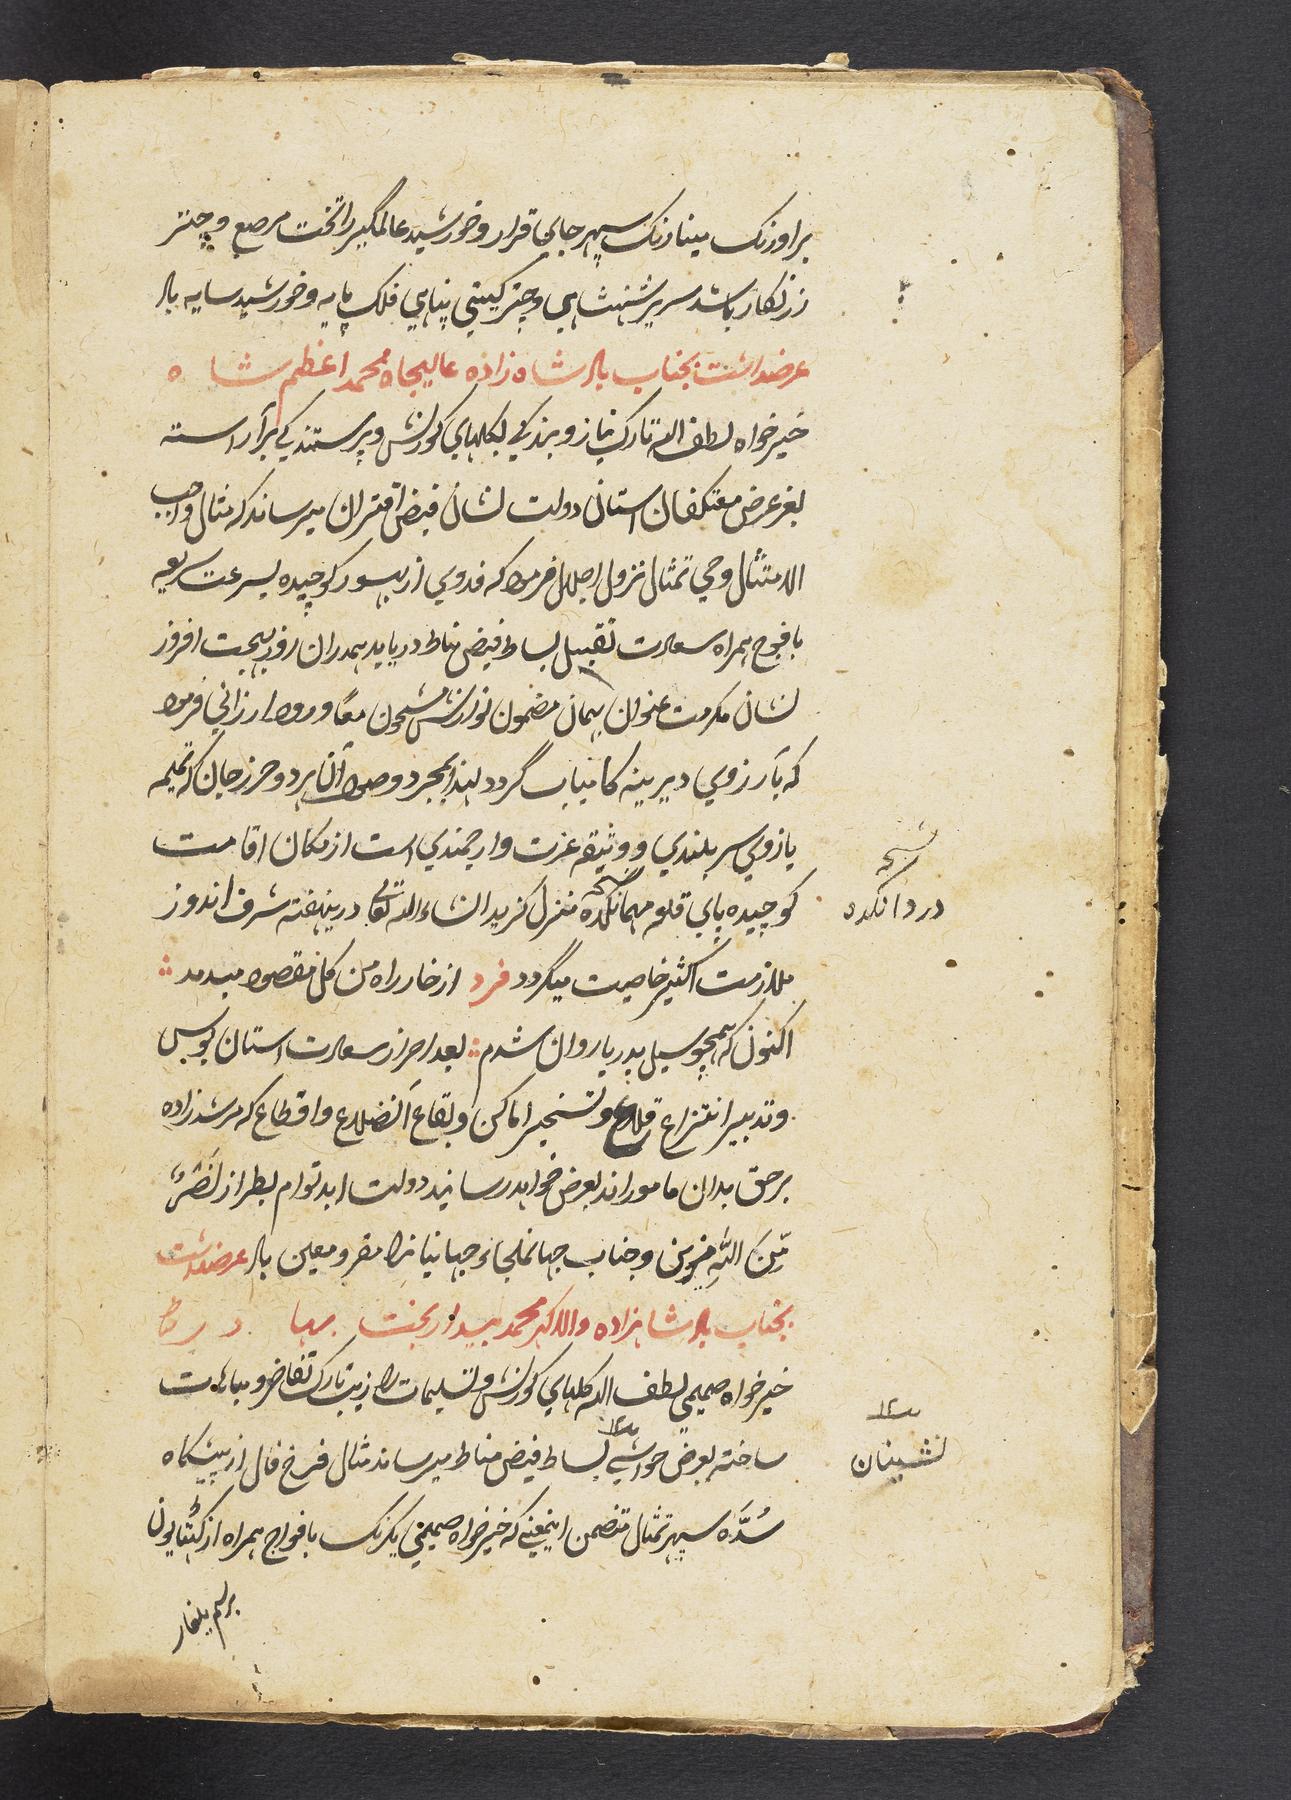 براورنک مینارنک سپهر جای قرار و خورشید عالمگیر را تخت مرصع و چتر
زرنکار باشد سریر شهنشاهی و چتر کیتی پناهی فلک پایه و خورشید سایه باد
عرضداشت بجناب پادشاه زاده عالیجاه محمد اعظم شاه
خیرخواه لطف الله تارک نیاز و بندکی بکلهای کورنش و پرستندکی برآراسته
بعز عرض معتکفان استان دولت نشان فیض اقتران میرساند که مثال واجب
الامتثال وحی تمثال نزول اجلال فرمود که فدوی از بیسور کوچیده بسرعت سریعه
با فوج همراه سعادت تقبیل بساط فیض مناط دریابد همدران روز بهجت افروز
نشان مکرمت عنوان بهمان مضمون نوازش مشحون معا ورود ارزانی فرمود
که بآرزوی دیرینه کامیاب گردد لهذا بمجرد وصول آنها بردو حرز جان که تمیمه
بازوی سربلندی و وثیقه عزت وارجمندی است از مکان اقامت
کوچیده پای قلعه مهمانکده منزل کزید انشاءالله تعالی درینهفته شرف اندوز
نسخه
دردانکده
ملازمت اکثیر خاصیت میگردد فرد از خار راه من کل مقصود میدمد
اکنون که همچو سیل بدریا روان شدم بعد احراز سعادت استان بوس
وتدبیر انتزاع قلاع و تسخیر اماکن و بقاع آنضلاع واقطاع که مرشدزاده
برحق بدان مامور اند بعرض خواهد رسانید دولت ابد توام بطراز نَصْرٌ
مِّنَ اللّهِ مزین و جناب جهانملجاء جهانیانرا مفر و معین باد عرضداشت
بجناب پادشاهزاده والا کهر محمد بیدار بخت بهادر
خیرخواه صمیمی لطف الله کلهای کورنش و تسلیمات را زیب تارک تفاخر و مباهات
ساخته بعرض حواشی بساط فیض مناط میرساند مثال فرخ فال از پیشکاه
نشینان
سُدَّه سپهر تمثال متضمن اینمعنی که خیرخواه صمیمی یکرنک با فواج همراه از
برسم یلغار